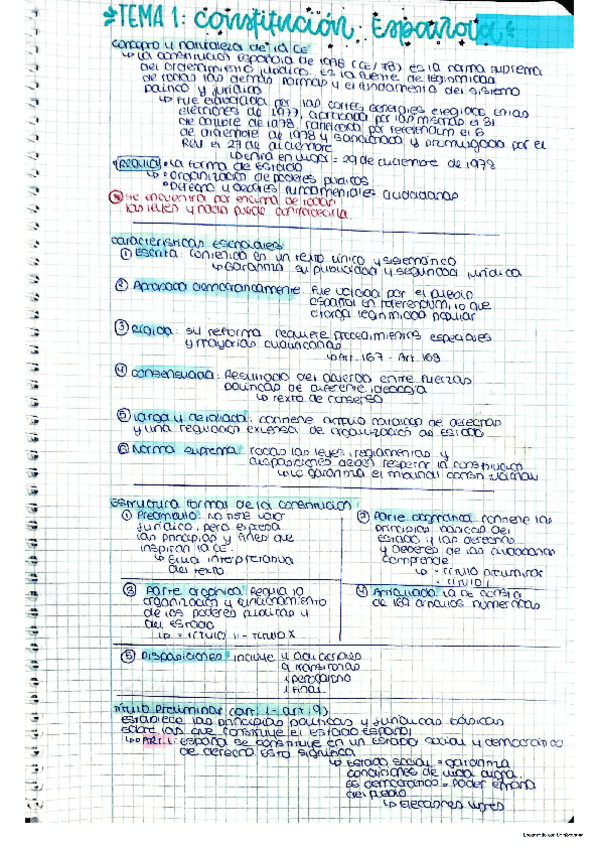 TEMA 1: Constitución Española
Concepto y naturaleza de la CE
↳ La constitución Española de 1978 (CE/78) es la norma suprema
del ordenamiento jurídico. Es la fuente de legitimidad
de todas las demás normas y el fundamento del sistema
político y jurídico
↳ Fue elaborada por las cortes generales elegidas en las
elecciones de 1977, aprobada por las mismas el 31
de octubre de 1978, ratificada por referendum el 6
de diciembre de 1978 y sancionada y promulgada por el
Rey el 27 de diciembre
↳ entra en vigor = 29 de diciembre de 1978
Regula • La forma de Estado
↳ • organización de poderes públicos
• Derecho y deberes fundamentales ciudadanos
se encuentra por encima de todas
las leyes y nada puede contradecirla.
características esenciales
① Escrita: contenida en un texto único y sistemático
↳ Garantiza su publicidad y seguridad jurídica
② Aprobada democráticamente: Fue votada por el pueblo
español en referendum, lo que
otorga legitimidad popular
③ Rígida: su reforma requiere procedimientos especiales
y mayorías cualificadas
↳ Art. 167 - Art. 168
④ consensuada: Resultado del acuerdo entre fuerzas
políticas de diferente ideología
↳ texto de consenso
⑤ Larga y detallada: contiene amplio catálogo de derechos
y una regulación extensa de organización del Estado
⑥ Norma suprema: todas las leyes, reglamentos y
disposiciones deben respetar la constitución
↳ Lo garantiza el tribunal constitucional
Estructura formal de la constitución:
① Preámbulo: no tiene valor
jurídico, pero expresa
los principios y fines que
inspiran la CE.
↳ Guía interpretativa
del texto.
② Parte dogmática: contiene los
principios básicos del
Estado y los derechos
y deberes de los ciudadanos
comprende
↳ • título preliminar
• título I
③ Parte orgánica: Regula la
organización y funcionamiento
de los poderes públicos y
del Estado
↳ • título II - título X
④ Articulado: La CE consta
de 169 artículos numerados
⑤ Disposiciones: incluye 4 adicionales
9 transitorias
1 derogatoria
1 final.
título Preliminar (art. 1 - art. 9)
establece los principios políticos y jurídicos básicos
sobre los que construye el estado español
↳ • Art. 1: España se constituye en un Estado social y democrático
de derecho. Esto significa
↳ Estado social = garantiza
condiciones de vida digna
es democrático = poder emana
del pueblo
↳ elecciones libres